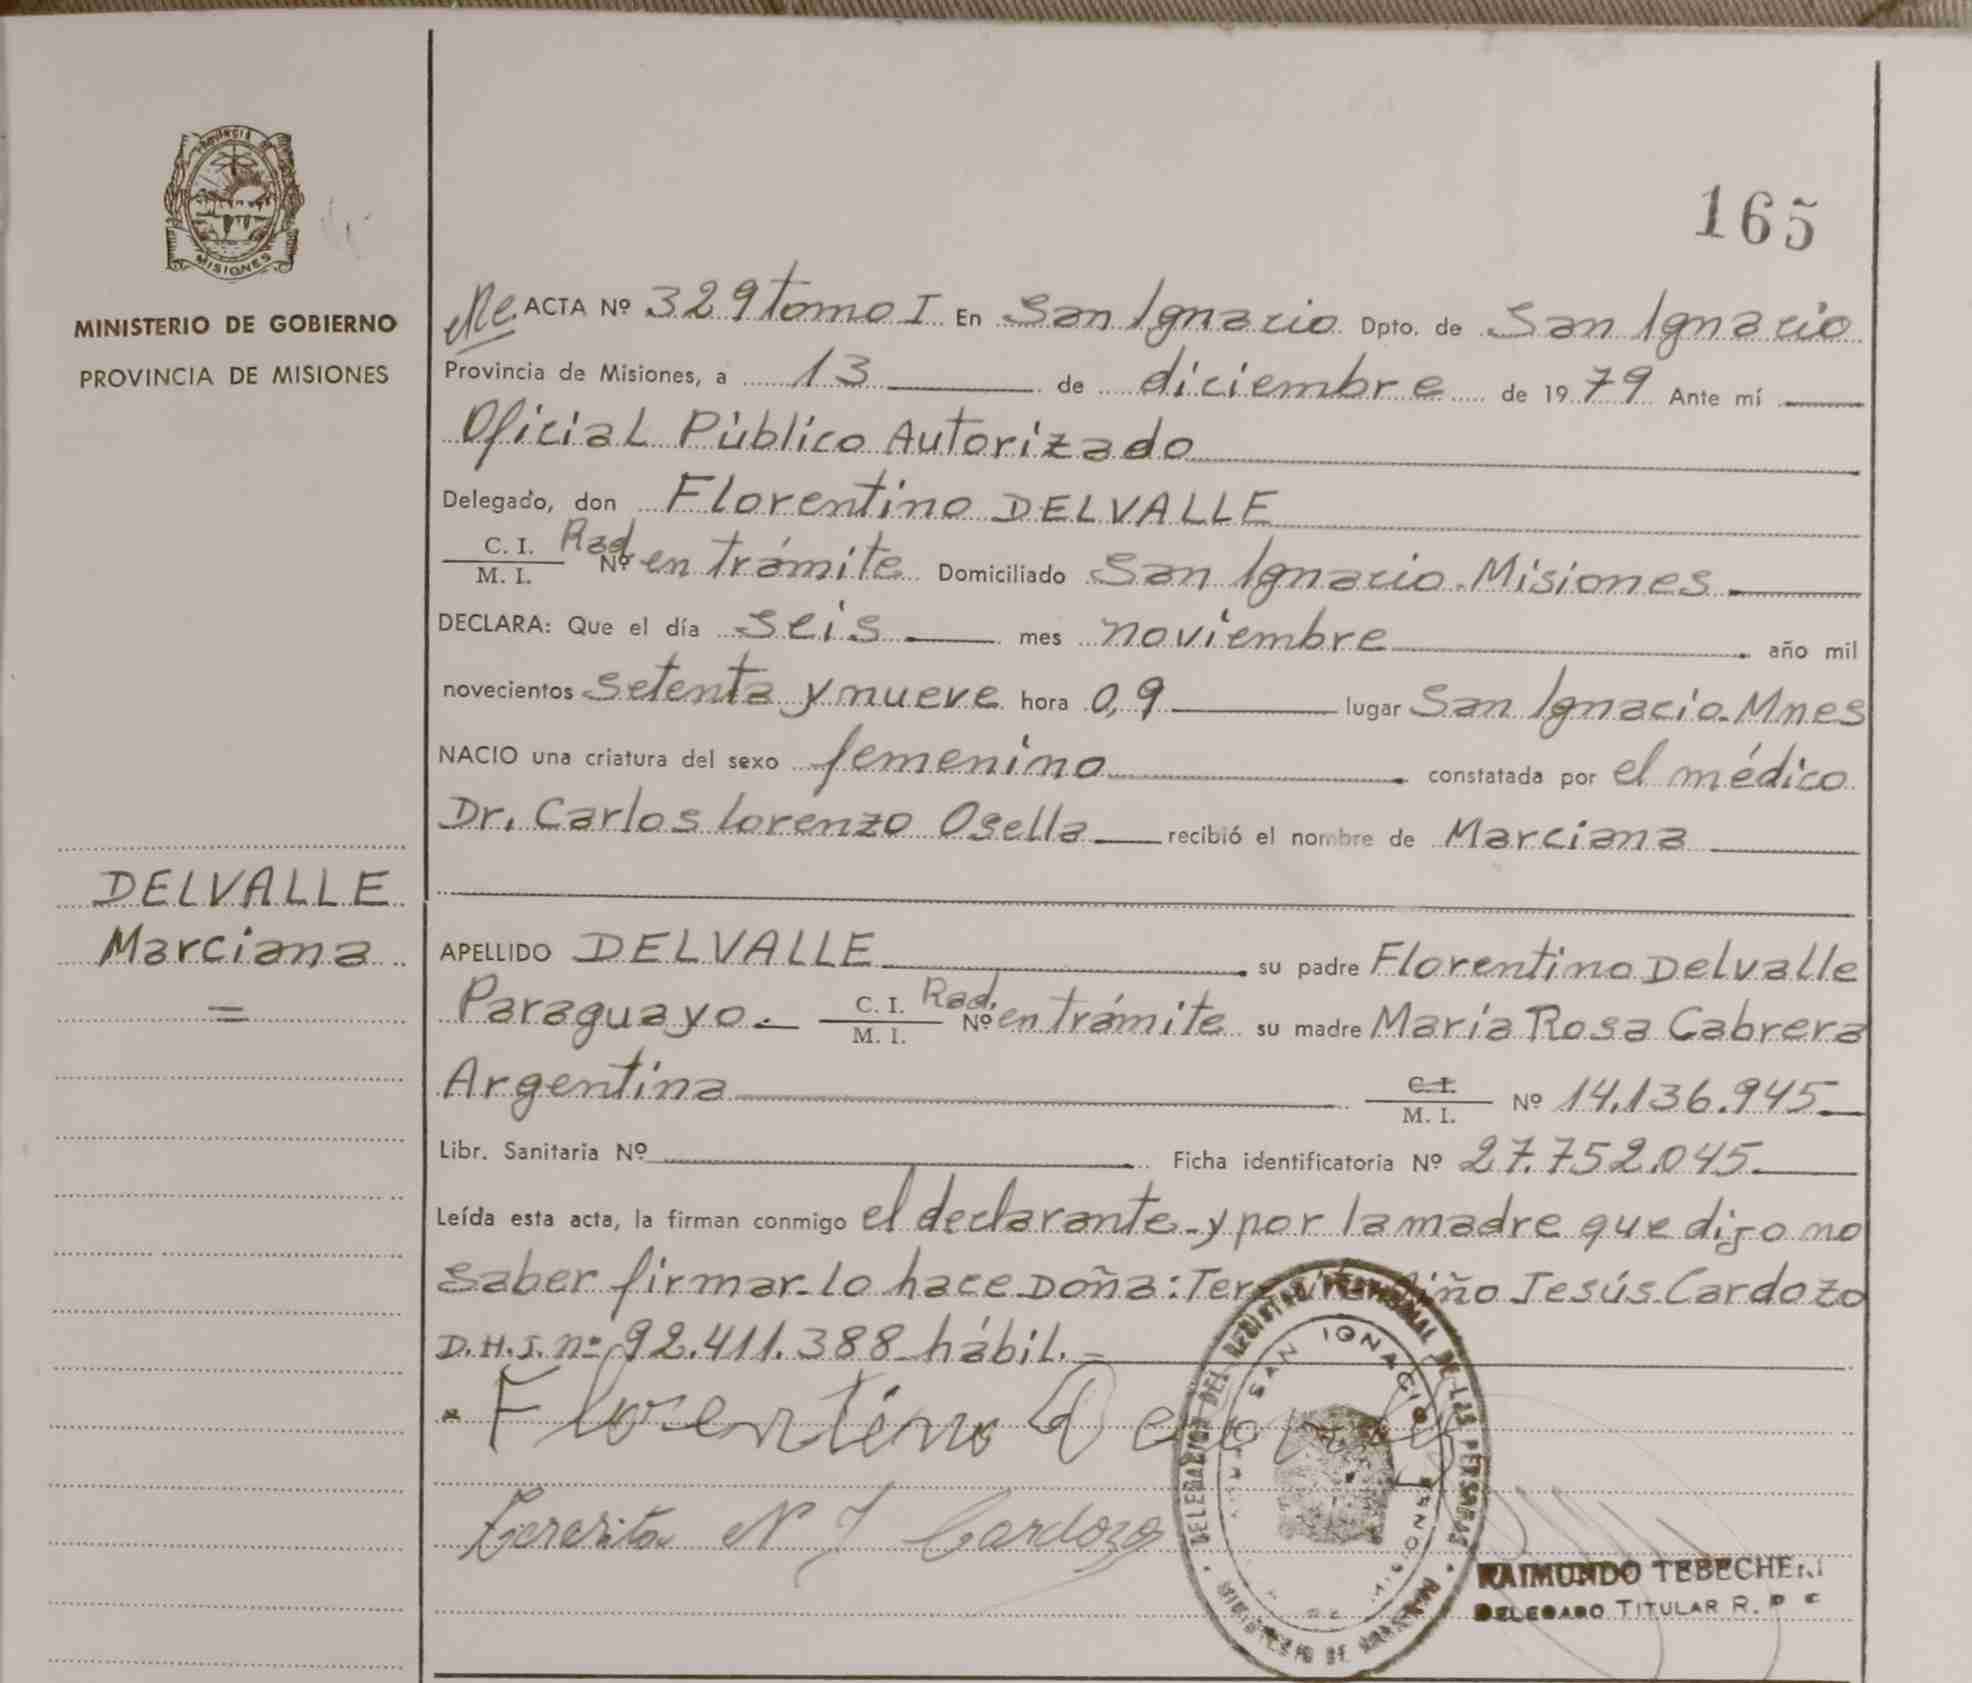 PROVINCIA
MISIONES
MINISTERIO DE GOBIERNO
PROVINCIA DE MISIONES
DELVALLE
Marciana
=
165
ACTA Nº 329 tomo I En San Ignacio Dpto. de San Ignacio
Provincia de Misiones, a 13 de diciembre de 1979 Ante mí
Oficial Público Autorizado
Delegado, don Florentino DELVALLE
C. I. / M. I. Rad. Nº en trámite Domiciliado San Ignacio. Misiones
DECLARA: Que el día seis mes noviembre año mil
novecientos setenta y nueve hora 0,9 lugar San Ignacio. Mnes
NACIO una criatura del sexo femenino constatada por el médico
Dr. Carlos Lorenzo Osella recibió el nombre de Marciana
APELLIDO DELVALLE su padre Florentino Delvalle
Paraguayo. C. I. / M. I. Rad. Nº en trámite su madre María Rosa Cabrera
Argentina C. I. / M. I. Nº 14.136.945
Libr. Sanitaria Nº Ficha identificatoria Nº 27.752.045
Leída esta acta, la firman conmigo el declarante y por la madre que dijo no
saber firmar lo hace Doña: Teresita Niño Jesús Cardozo
D.H.I. nº 92.411.388 hábil.
Florentino Delvalle
Teresita N J Cardozo
DELEGACION DEL REGISTRO PROVINCIAL DE LAS PERSONAS
SAN IGNACIO
MISIONES
MINISTERIO DE GOBIERNO
RAIMUNDO TEBECHERI
DELEGADO TITULAR R. P C